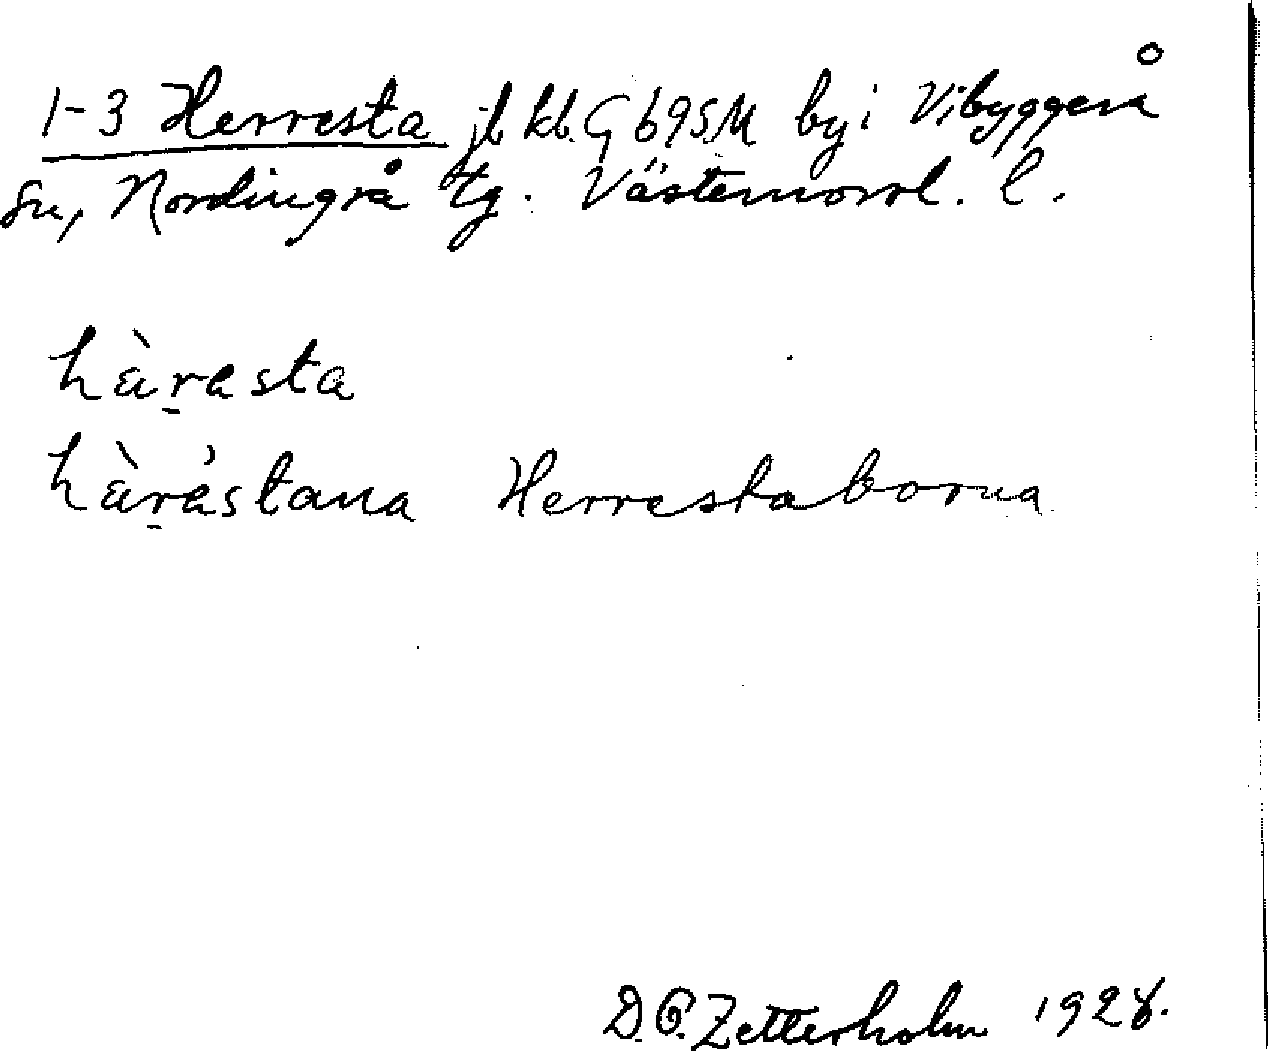 1-3 Herresta jb kb. G 695M by i Vibyggerå
sn, Nordingrå tg. Västernorrl. l.
hàr̠asta
hàr̠ástana Herrestaborna
D.O. Zetterholm 1928.